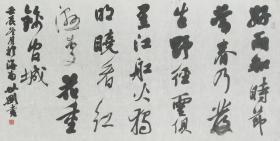 好雨知時節
當春乃發
生野徑雲俱
黑江船火獨
明曉看紅
濕處花重
錦官城